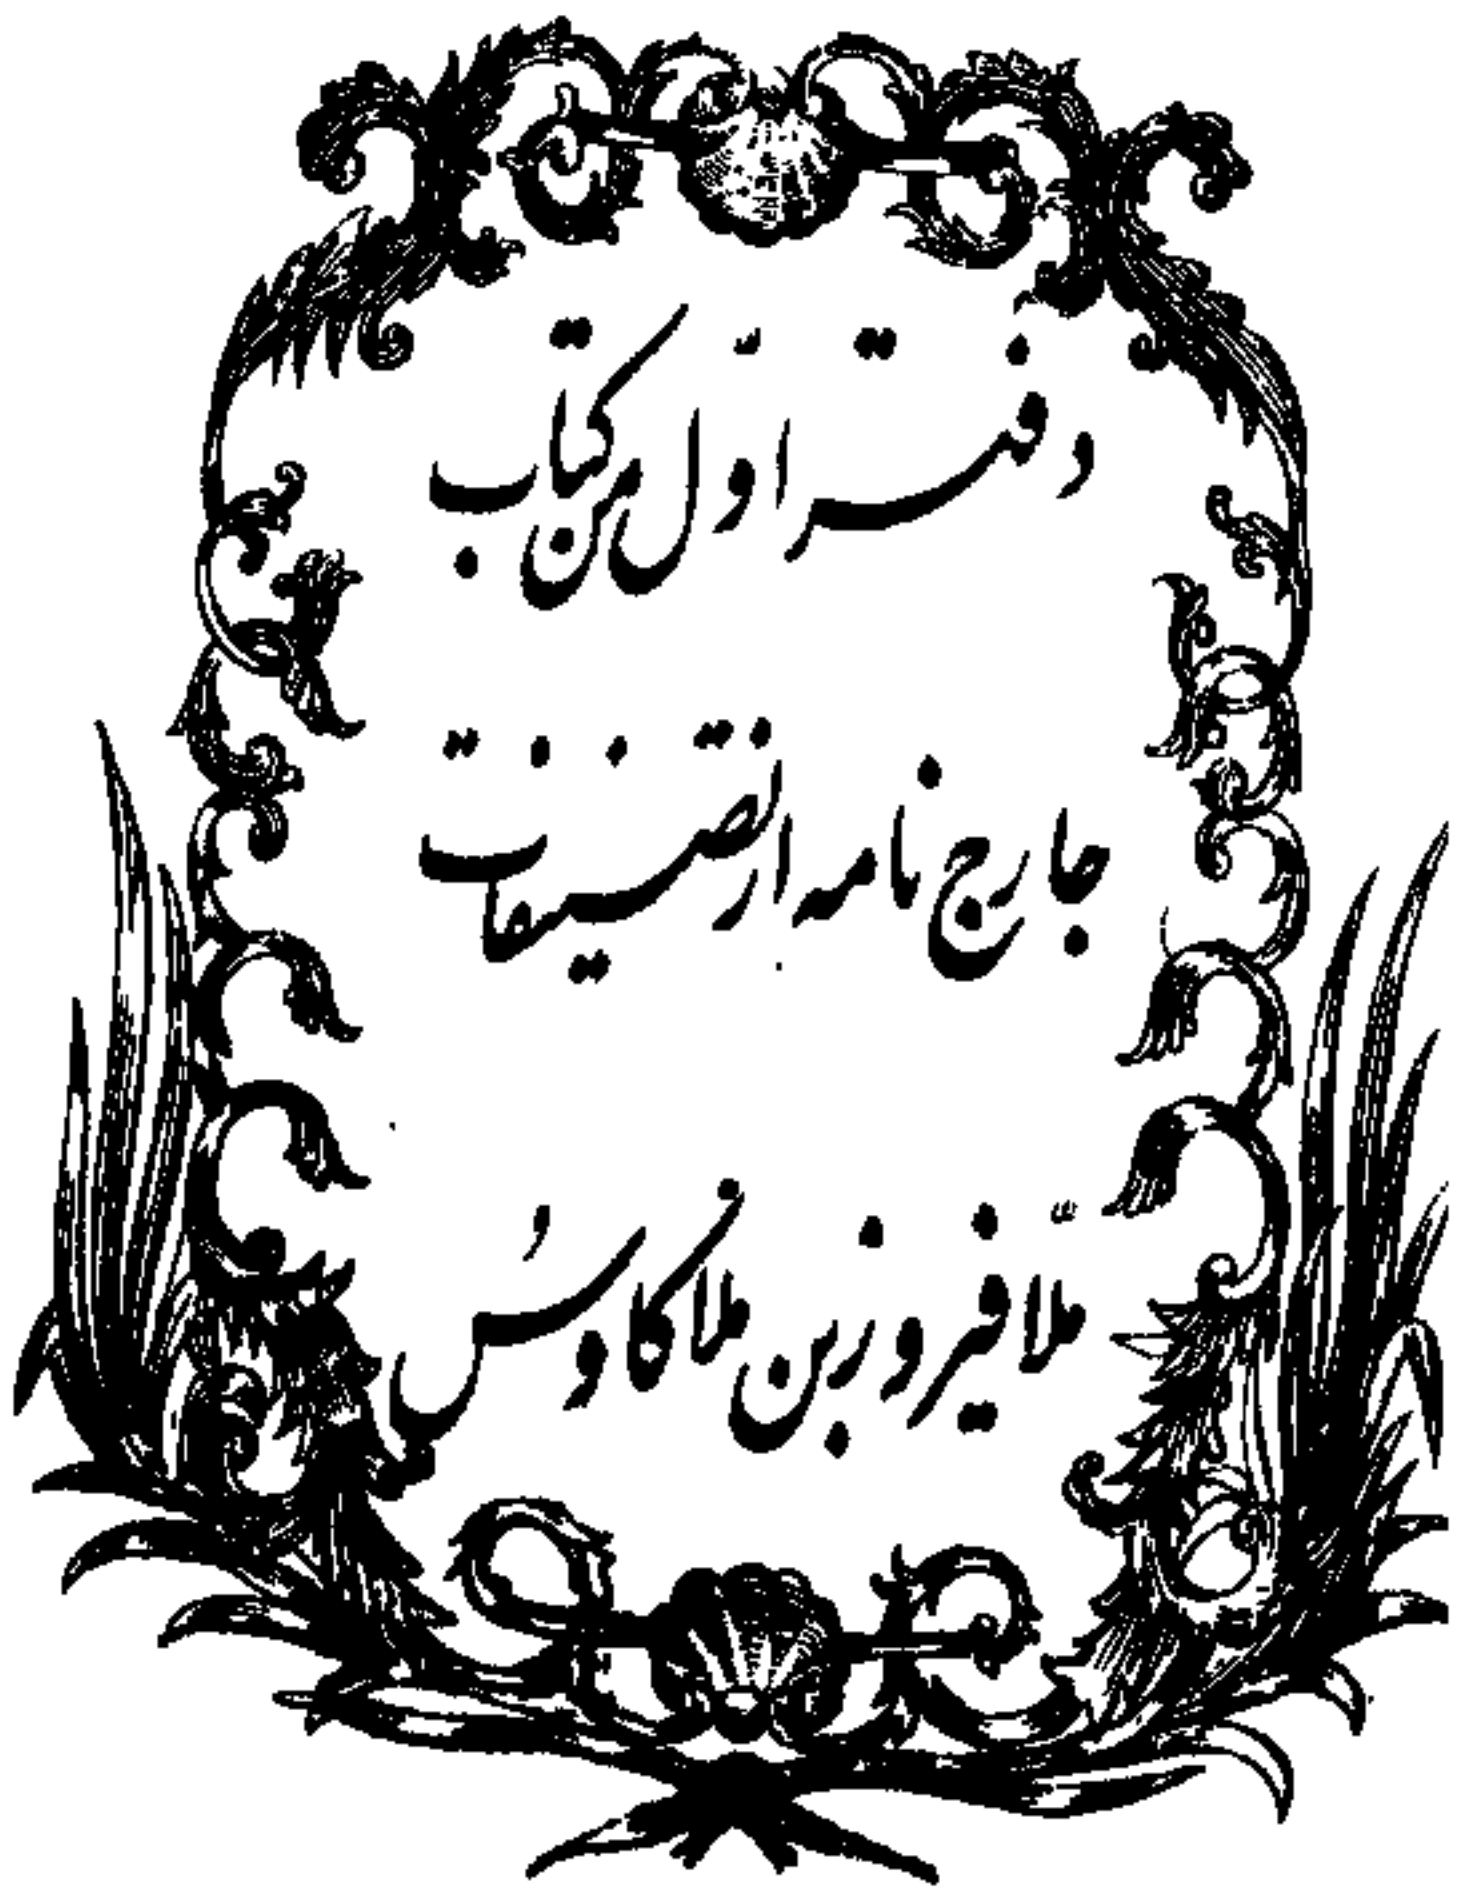 دفتر اوّل من کتاب
جارج نامه از تصنیفات
ملّا فیروز بن ملا کاوُس